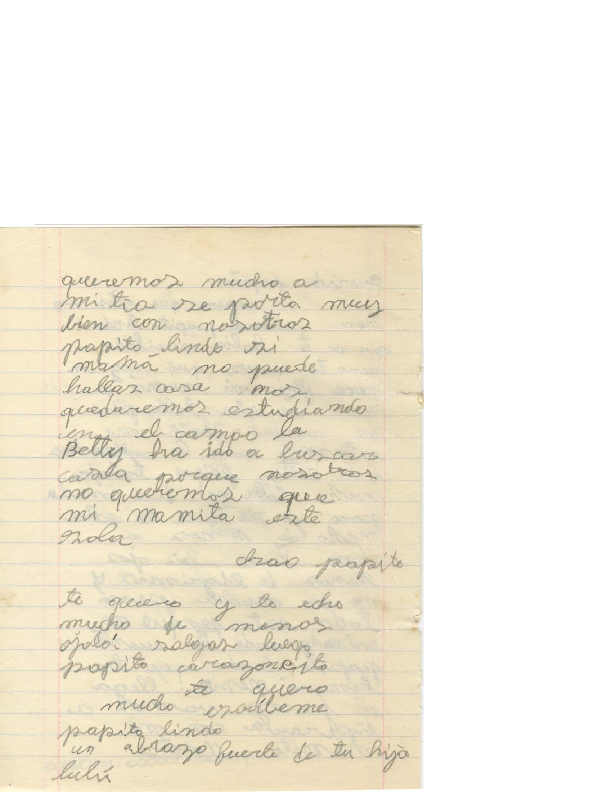 queremos mucho a
mi tia se porta muy
bien con nosotros
papito lindo si
mamá no puede
hallar casa nos
quedaremos estudiando
en el campo la
Betty ha ido a buscar
casa porque nosotros
no queremos que
mi mamita este
sola
chao papito
te quiero y te echo
mucho de menos
ojalá salgas luego
papito corazoncito
te quiero
mucho escribeme
papito lindo
un abrazo fuerte de tu hija
lulú